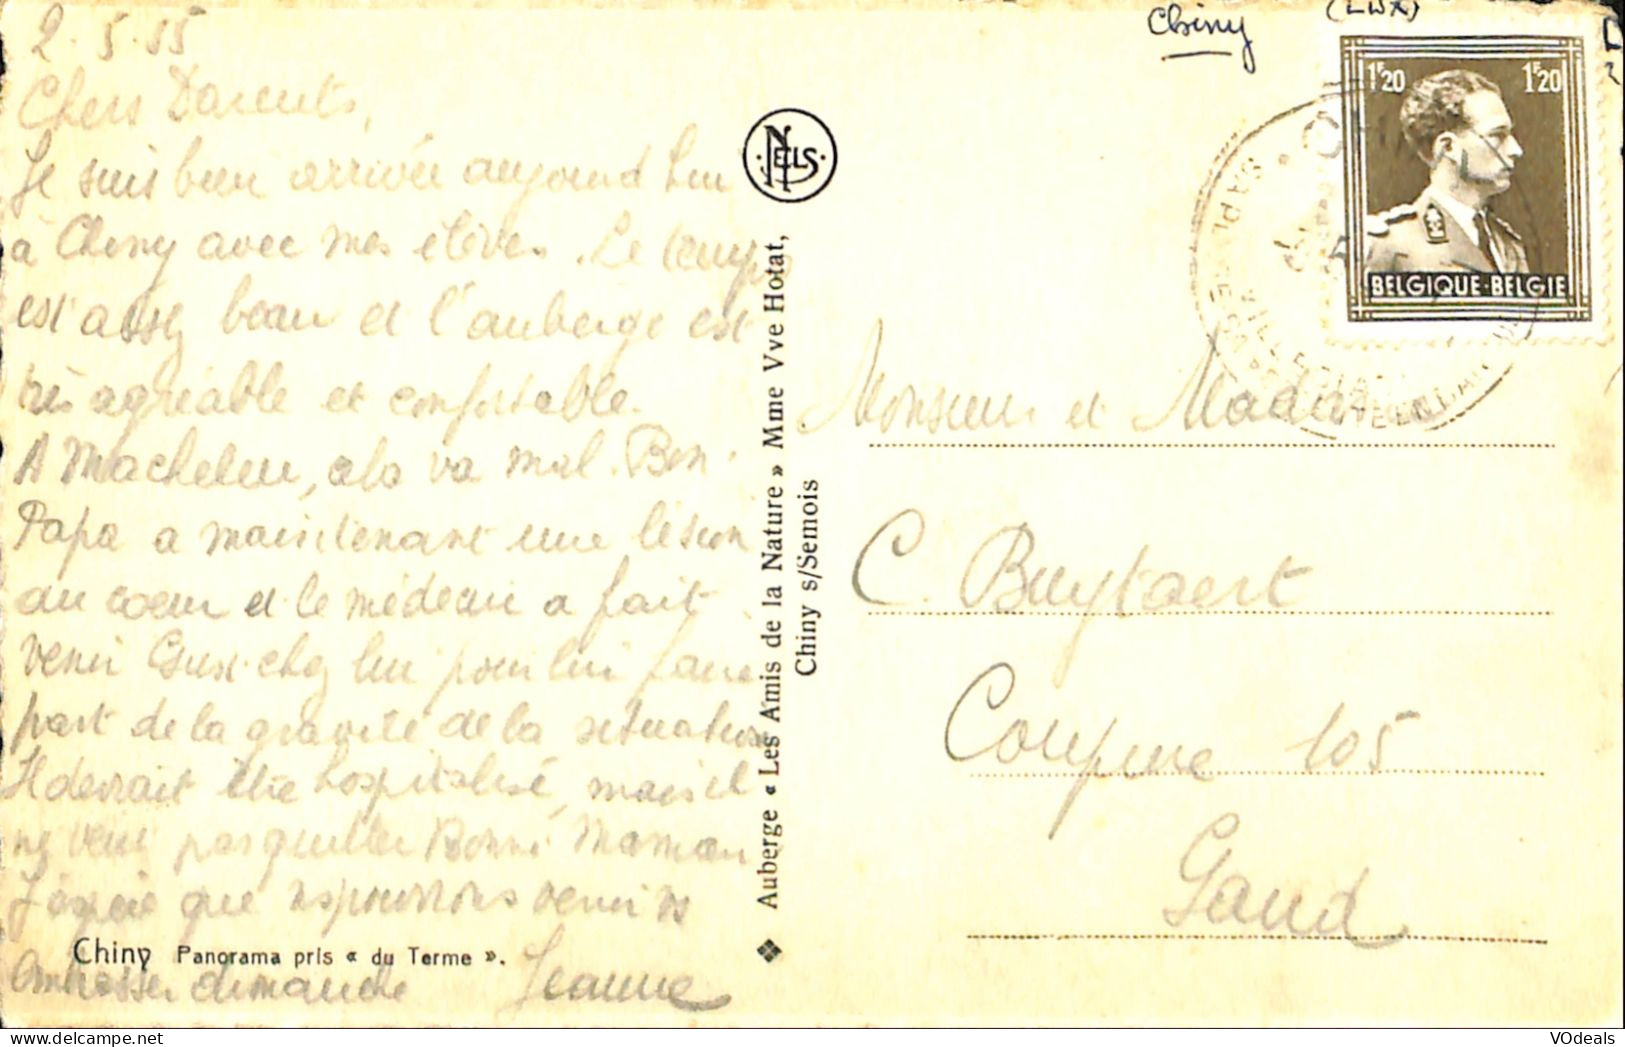 2.5.55
Chers Parents,
Je suis bien arrivée aujourd'hui
à Chiny avec mes élèves. Le temps
est assez beau et l'auberge est
très agréable et confortable.
A Machelen, cela va mal. Bon-
Papa a maintenant une lésion
au coeur et le médecin a fait
venir chez lui pour lui faire
part de la gravité de la situation
Il devrait être hospitalisé, mais il
ne veut pas quitter Bonne Maman
J'espère que ns pourrons venir vs
embrasser dimanche Jeanne
Chiny Panorama pris « du Terme ».
NELS
Auberge « Les Amis de la Nature » Mme Vve Hotat,
Chiny s/Semois
Chiny (LUX)
1F20 1F20
BELGIQUE-BELGIE
Monsieur et Madame
C. Buytaert
Coupure 105
Gand
VOdeals